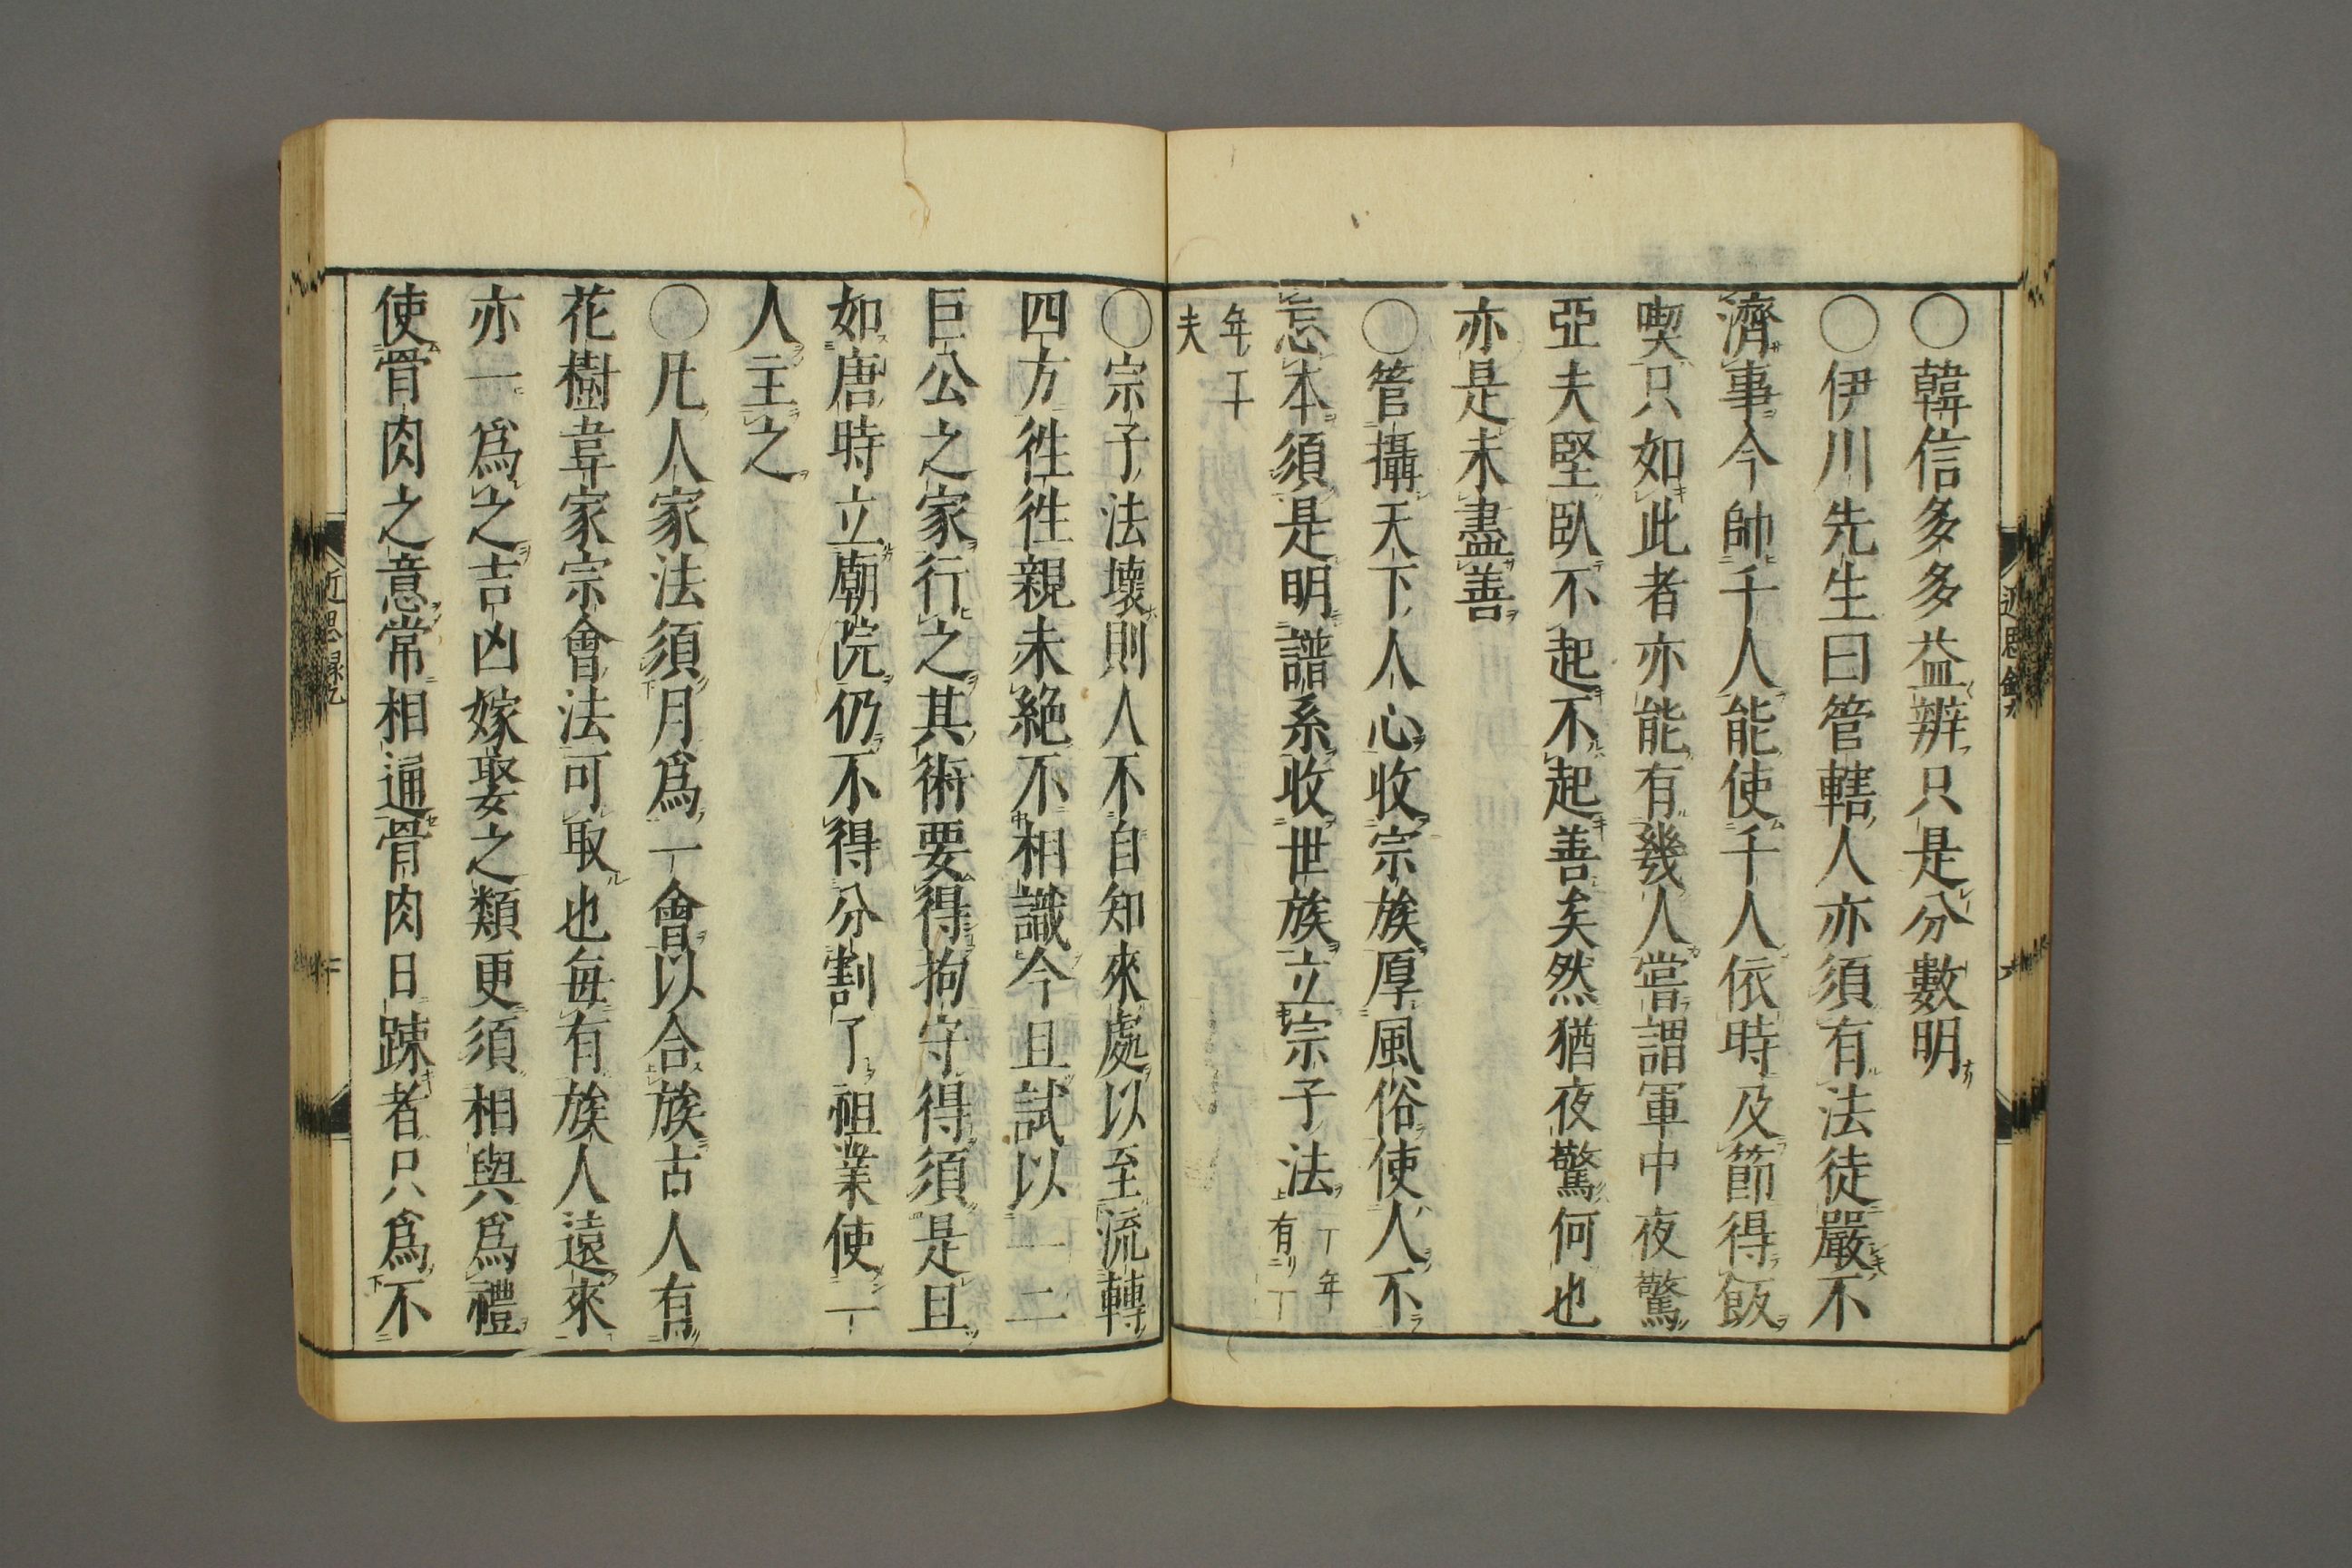 ○韓信多多益辨只是分數明
○伊川先生曰管轄人亦須有法徒嚴不
濟事今帥千人能使千人依時及節得飯
喫只如此者亦能有幾人嘗謂軍中夜驚
亞夫堅臥不起不起善矣然猶夜驚何也
亦是未盡善
○管攝天下人心收宗族厚風俗使人不
忘本須是明譜系收世族立宗子法
丁年
有丁
年工
夫
○宗子法壞則人不自知來處以至流轉
四方徃徃親未絶不相識今且試以一二
巨公之家行之其術要得拘守得須是且
如唐時立廟院仍不得分割了祖業使一
人主之
○凡人家法須月爲一會以合族古人有
花樹韋家宗會法可取也毎有族人遠來
亦一爲之吉凶嫁娶之類更須相與爲禮
使骨肉之意常相通骨肉日踈者只爲不
近思録九
近思録九